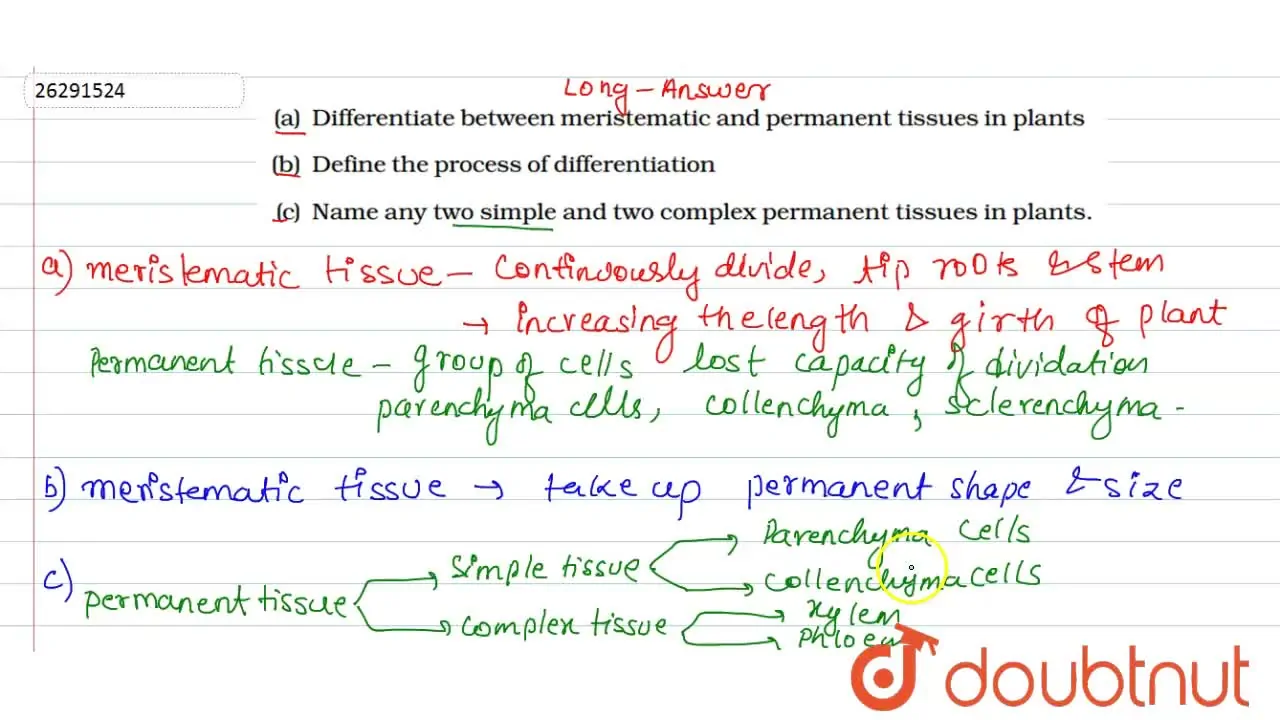 26291524
Long-Answer
(a) Differentiate between meristematic and permanent tissues in plants
(b) Define the process of differentiation
(c) Name any two simple and two complex permanent tissues in plants.
a) meristematic tissue - continuously divide, tip roots & stem
→ increasing the length & girth of plant
Permanent tissue - group of cells lost capacity of dividation
parenchyma cells, collenchyma, sclerenchyma -
b) meristematic tissue → take up permanent shape & size
c) permanent tissue
simple tissue
Parenchyma cells
collenchyma cells
complex tissue
xylem
phloem
doubtnut